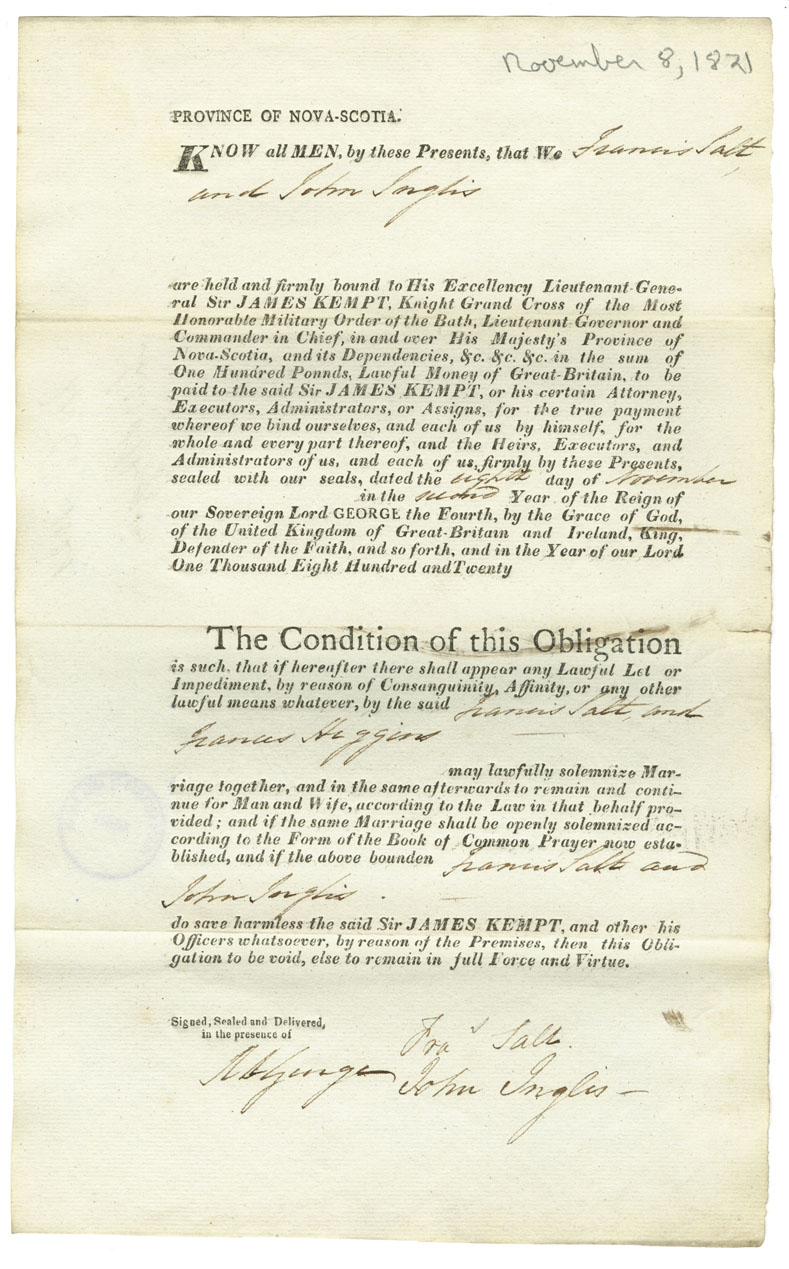 November 8, 1821
PROVINCE OF NOVA-SCOTIA.
KNOW all MEN, by these Presents, that We Francis Salt,
and John Inglis
are held and firmly bound to His Excellency Lieutenant-Gene-
ral Sir JAMES KEMPT, Knight Grand Cross of the Most
Honorable Military Order of the Bath, Lieutenant Governor and
Commander in Chief, in and over His Majesty's Province of
Nova-Scotia, and its Dependencies, &c. &c. &c. in the sum of
One Hundred Ponnds, Lawful Money of Great-Britain, to be
paid to the said Sir JAMES KEMPT, or his certain Attorney,
Executors, Administrators, or Assigns, for the true payment
whereof we bind ourselves, and each of us by himself, for the
whole and every part thereof, and the Heirs, Executors, and
Administrators of us, and each of us, firmly by these Presents,
sealed with our seals, dated the eighth day of November
in the second Year of the Reign of
our Sovereign Lord GEORGE the Fourth, by the Grace of God,
of the United Kingdom of Great-Britain and Ireland, King,
Defender of the Faith, and so forth, and in the Year of our Lord
One Thousand Eight Hundred and Twenty
The Condition of this Obligation
is such, that if hereafter there shall appear any Lawful Let or
Impediment, by reason of Consanguinity, Affinity, or any other
lawful means whatever, by the said Francis Salt, and
Frances Higgins
may lawfully solemnize Mar-
riage together, and in the same afterwards to remain and conti-
nue for Man and Wife, according to the Law in that behalf pro-
vided; and if the same Marriage shall be openly solemnized ac-
cording to the Form of the Book of Common Prayer now esta-
blished, and if the above bounden Francis Salt and
John Inglis.
do save harmless the said Sir JAMES KEMPT, and other his
Officers whatsoever, by reason of the Premises, then this Obli-
gation to be void, else to remain in full Force and Virtue.
Signed, Sealed and Delivered,
in the presence of
Fras Salt.
George
John Inglis